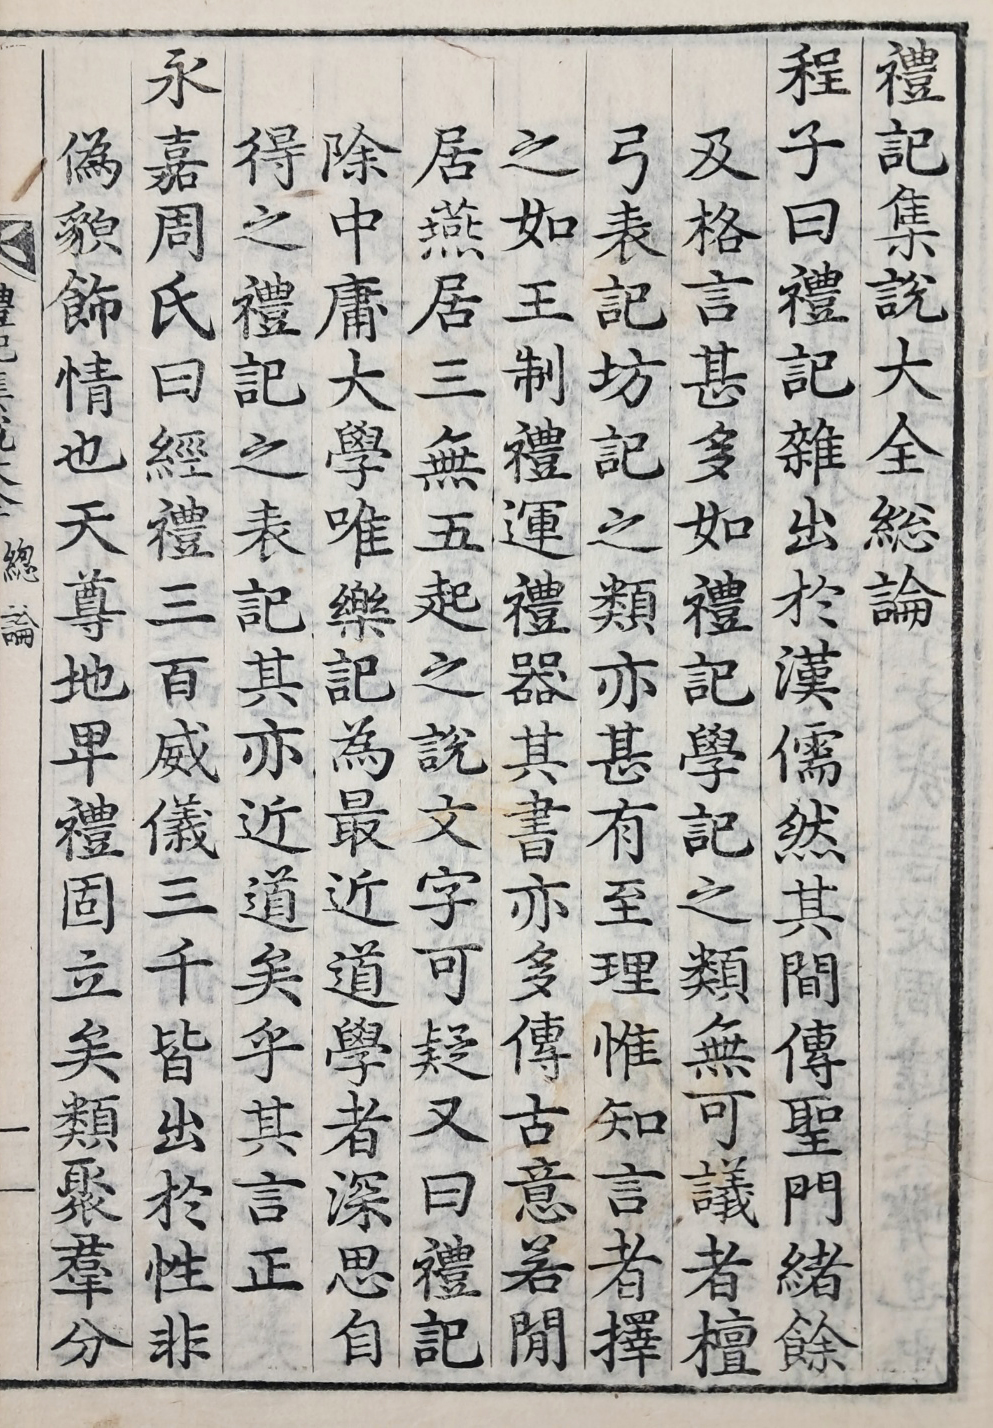 禮記集說大全総論
程子曰禮記雜出於漢儒然其間傳聖門緒餘
及格言甚多如禮記學記之類無可議者檀
弓表記坊記之類亦甚有至理惟知言者擇
之如王制禮運禮器其書亦多傳古意若閒
居燕居三無五起之說文字可疑又曰禮記
除中庸大學唯樂記為最近道學者深思自
得之禮記之表記其亦近道矣乎其言正
永嘉周氏曰經禮三百威儀三千皆出於性非
偽貌飾情也天尊地卑禮固立矣類聚羣分
禮記集說大全 總論 一